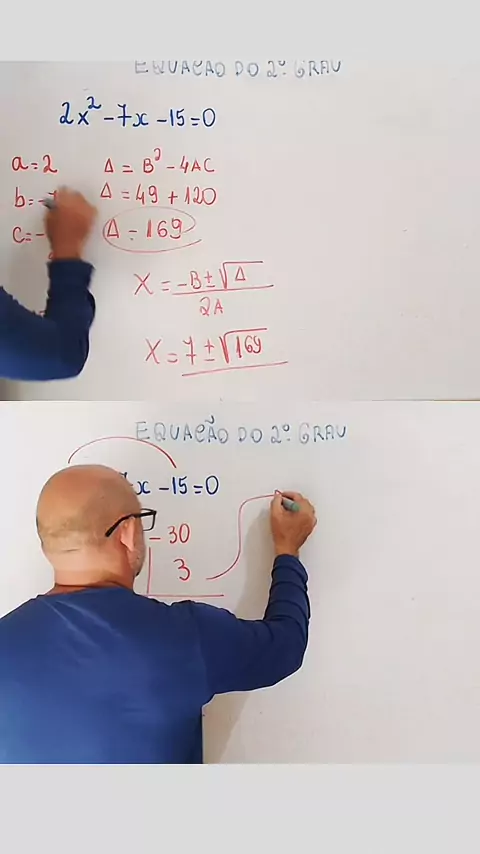 EQUAÇÃO DO 2º GRAU
2x² - 7x - 15 = 0
a = 2 Δ = B² - 4AC
b = - Δ = 49 + 120
c = - Δ = 169
X = -B ± √Δ
2A
X = 7 ± √169
EQUAÇÃO DO 2º GRAU
x - 15 = 0
- 30
3